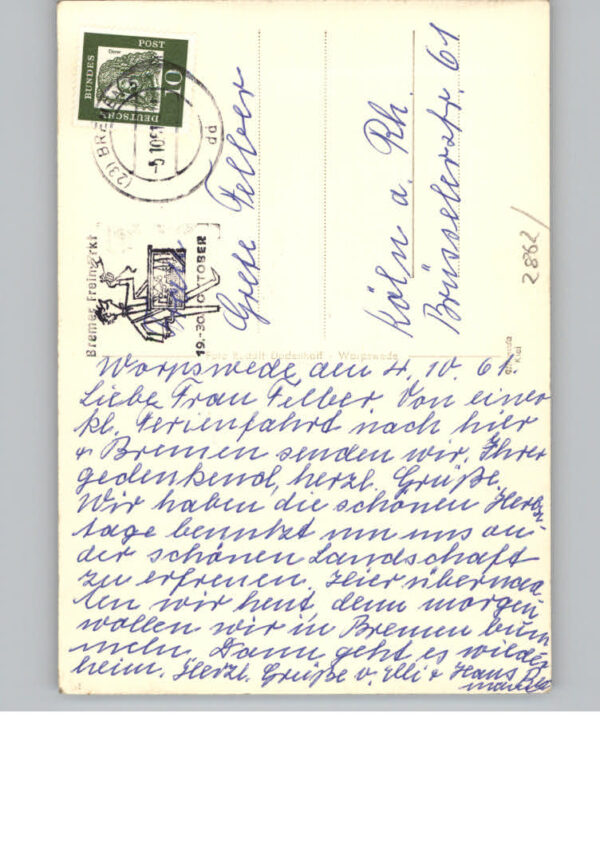 BUNDES POST
Dürer
10
DEUTSCHE
(23) BREMEN
-5.10.61
dd
Bremer Freimarkt
19.-30. OKTOBER
Frau
Grete Felber
Köln a. Rh.
Brüsselerstr. 61
2862/
Foto Rudolf Dodenhoff - Worpswede
Kiel
Worpswede den 4. 10. 61.
Liebe Frau Felber. Von einer
kl. Ferienfahrt nach hier
+ Bremen senden wir, Ihrer
gedenkend, herzl. Grüße.
Wir haben die schönen Herbst-
tage benutzt um uns an
der schönen Landschaft
zu erfreuen. Hier übernach-
ten wir heut, denn morgen
wollen wir in Bremen bum-
meln. Dann geht es wieder
heim. Herzl. Grüße v. Elli + Hans